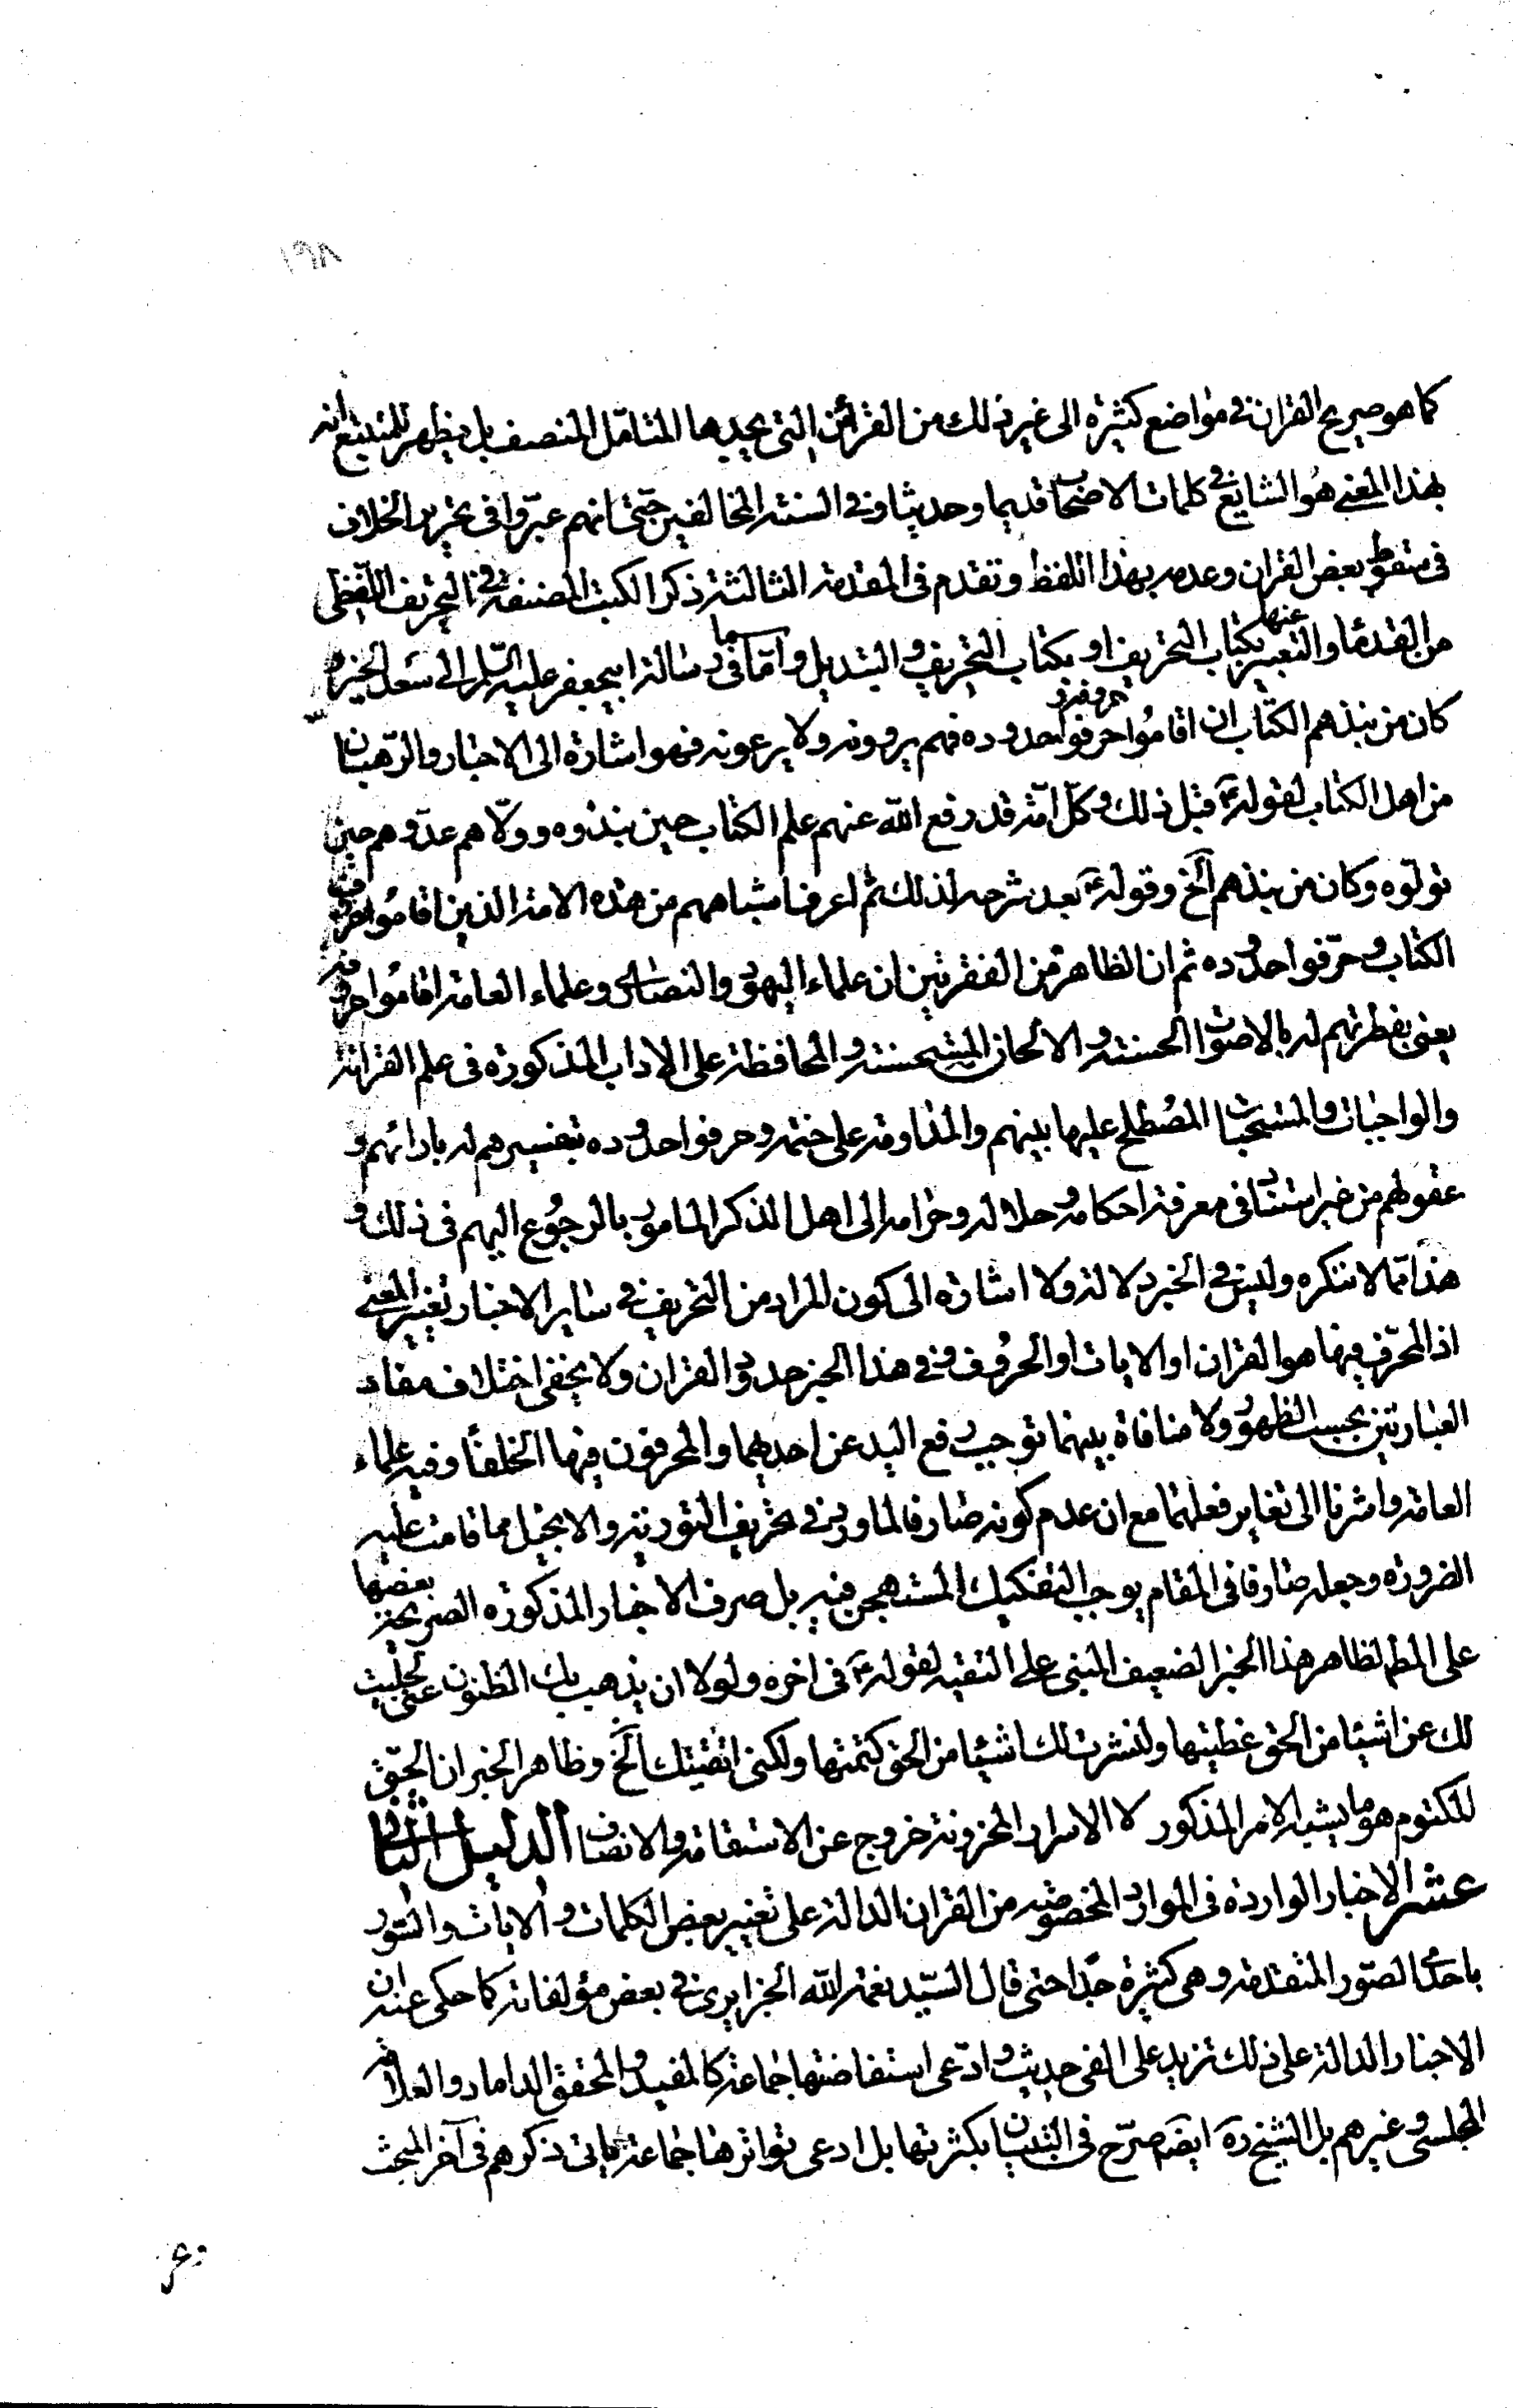 ١٩٨
كما هو صريح القران في مواضع كثيرة الى غير ذلك من القرائن التي يجدها المتامل المنصف بل يظهر للمتتبع انه
بهذا المعنى هو الشايع في كلمات الاصحاب قديما وحديثا وفي السنة المخالفين حتى انهم عبّروا في تحرير الخلاف
في سقوط بعض القران وعدمه بهذا اللفظ وتقدم في المقدمة الثالثة ذكر الكتب المصنفة في التحريف اللفظي
من القدماء والتعبير عنها بكتاب التحريف او بكتاب التحريف و التبديل واما ما في رسالة ابيجعفر عليه السلم الى سعد الخير و
كان من نبذهم الكتاب ان اقاموا حروفه و حرفوا حدوده فهم يروونه ولا يرعونه فهو اشارة الى الاحبار والرهبان
من اهل الكتاب لقوله ع قبل ذلك و كلّ امّة قد رفع الله عنهم علم الكتاب حين نبذوه وولّاهم عدوهم حين
تولوه وكان من نبذهم الخ وقوله ع بعد شرحه لذلك ثم اعرف اشباههم من هذه الامة الذين اقاموا حروف
الكتاب و حرّفوا حدوده ثم ان الظاهر من الفقرتين ان علماء اليهود والنصارى وعلماء العامة اقاموا حروفه
يعني بقرائتهم له بالاصوات الحسنة و الالحان المستحسنة و المحافظة على الاداب المذكورة في علم القرائة
والواجبات و المستحبات المصطلح عليها بينهم والمداومة على ختمه وحرفوا حدوده بتفسيرهم له بارائهم و
عقولهم من غير استناد في معرفة احكامه و حلاله وحرامه الى اهل الذكر المامور بالرجوع اليهم في ذلك و
هذا مما لا ننكره وليس في الخبر دلالة ولا اشارة الى كون المراد من التحريف في ساير الاخبار تغيير المعنى
اذ المحرّف فيها هو القران او الايات او الحروف و في هذا الخبر حدود القران ولا يخفى اختلاف مفاد
العبارتين بحسب الظهور ولا منافاة بينهما توجب رفع اليد عن احديهما والمحرفون فيها الخلفاء وفيه علماء
العامة واشرنا الى تغاير فعلهما مع ان عدم كونه صارفا لما ورد في تحريف التورية والانجيل مما قامت عليه
الضرورة وجعله صارفا في المقام يوجب التفكيك المستهجن فيه بل صرف الاخبار المذكورة الصريحة بعضها
على المط لظاهر هذا الخبر الضعيف المبنى على التقية لقوله ع في اخره ولولا ان يذهب بك الظنون عنى لجليت
لك عن اشياء من الحق غطيتها ولنشرت لك اشياء من الحق كتمتها ولكني اتقيتك الخ وظاهر الخبر ان الحق
المكتوم هو ما يشبه الامر المذكور لا الاسرار المخزونة خروج عن الاستقامة و الانصاف الدليل الثاني
عشر الاخبار الواردة في الموارد المخصوصة من القران الدالة على تغيير بعض الكلمات و الايات و السور
باحدى الصور المتقدمة وهي كثيرة جدا حتى قال السيّد نعمة الله الجزايري في بعض مؤلفاته كما حكى عنه ان
الاخبار الدالة على ذلك تزيد على الفي حديث و ادّعى استفاضتها جماعة كالمفيد و المحقق الداماد و العلامة
المجلسي و غيرهم بل الشيخ ره ايضا صرّح في التبيان بكثرتها بل ادعى تواترها جماعة ياتي ذكرهم في آخر المبحث